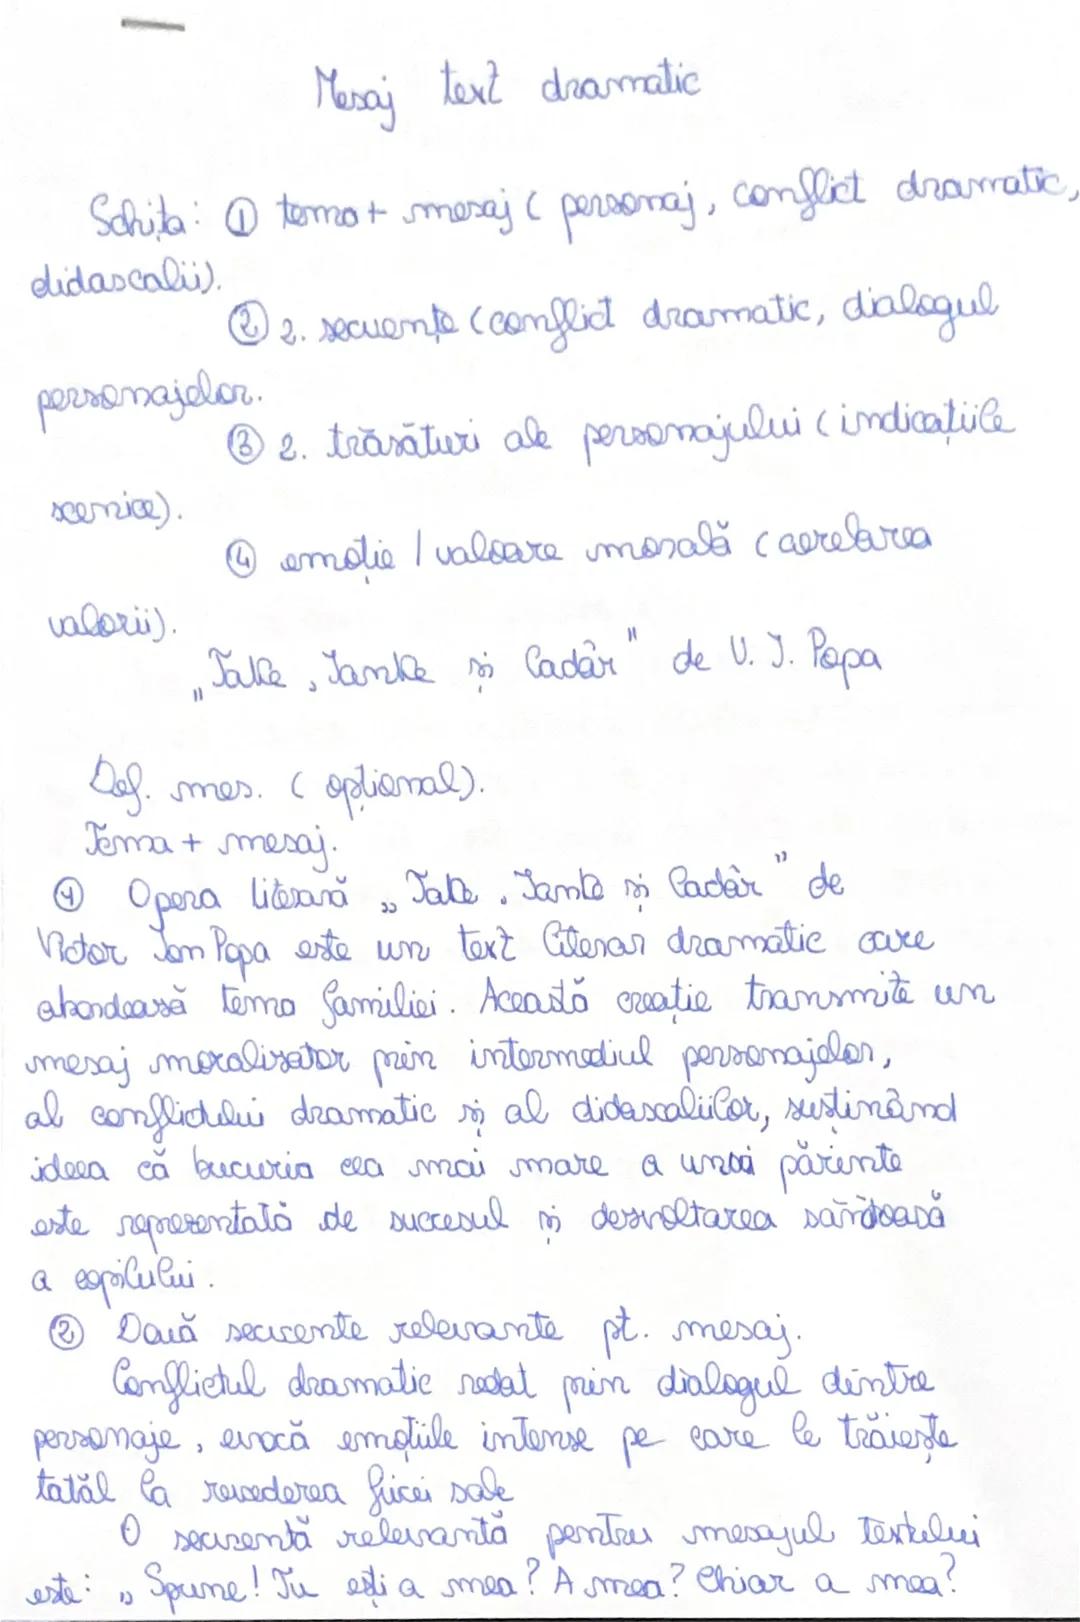 Mesaj text dramatic
Schița: ① tema + mesaj ( personaj, conflict dramatic,
didascalii).
② 2. secvențe ( conflict dramatic, dialogul
personajelor.
③ 2. trăsături ale personajului ( indicațiile
scenice).
④ emoție / valoare morală ( corelarea
valorii).
„Take, Ianke și Cadâr" de V. I. Popa
Def. mes. ( opțional).
Tema + mesaj.
① Opera literară „Take, Ianke și Cadâr" de
Victor Ion Popa este un text literar dramatic care
abordează tema familiei. Această creație transmite un
mesaj moralizator prin intermediul personajelor,
al conflictului dramatic și al didascaliilor, susținând
ideea că bucuria cea mai mare a unui părinte
este reprezentată de succesul și dezvoltarea sănătoasă
a copilului.
② Două secvente relevante pt. mesaj.
Conflictul dramatic redat prin dialogul dintre
personaje, evocă emoțiile intense pe care le trăiește
tatăl la revederea fiicei sale
O secvență relevantă pentru mesajul textului
este: „Spune! Tu ești a mea? A mea? Chiar a mea?